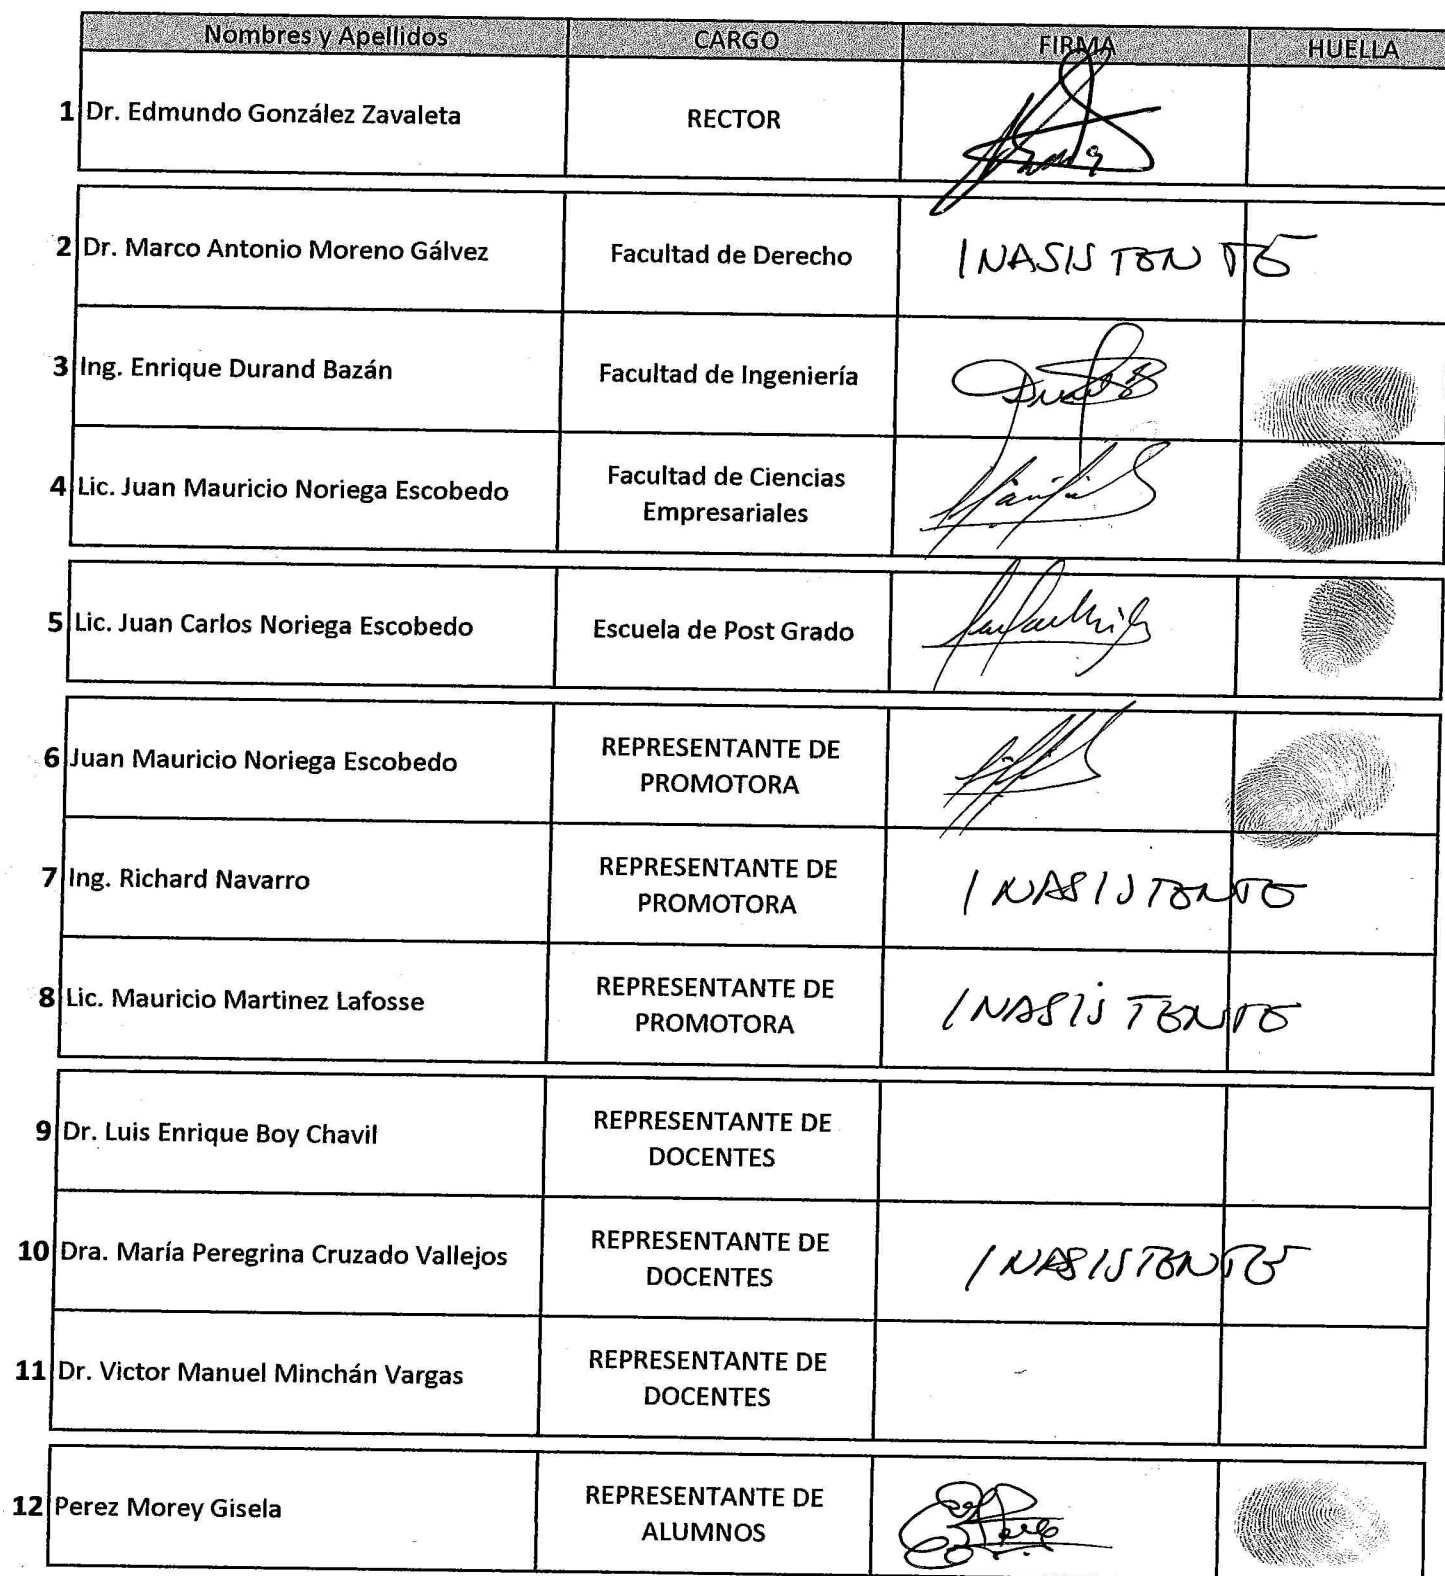 Nombres y Apellidos CARGO FIRMA HUELLA
1 Dr. Edmundo González Zavaleta RECTOR
2 Dr. Marco Antonio Moreno Gálvez Facultad de Derecho INASISTENTE
3 Ing. Enrique Durand Bazán Facultad de Ingeniería
4 Lic. Juan Mauricio Noriega Escobedo Facultad de Ciencias
Empresariales
5 Lic. Juan Carlos Noriega Escobedo Escuela de Post Grado
6 Juan Mauricio Noriega Escobedo REPRESENTANTE DE
PROMOTORA
7 Ing. Richard Navarro REPRESENTANTE DE
PROMOTORA INASISTENTE
8 Lic. Mauricio Martinez Lafosse REPRESENTANTE DE
PROMOTORA INASISTENTE
9 Dr. Luis Enrique Boy Chavil REPRESENTANTE DE
DOCENTES
10 Dra. María Peregrina Cruzado Vallejos REPRESENTANTE DE
DOCENTES INASISTENTE
11 Dr. Victor Manuel Minchán Vargas REPRESENTANTE DE
DOCENTES
12 Perez Morey Gisela REPRESENTANTE DE
ALUMNOS